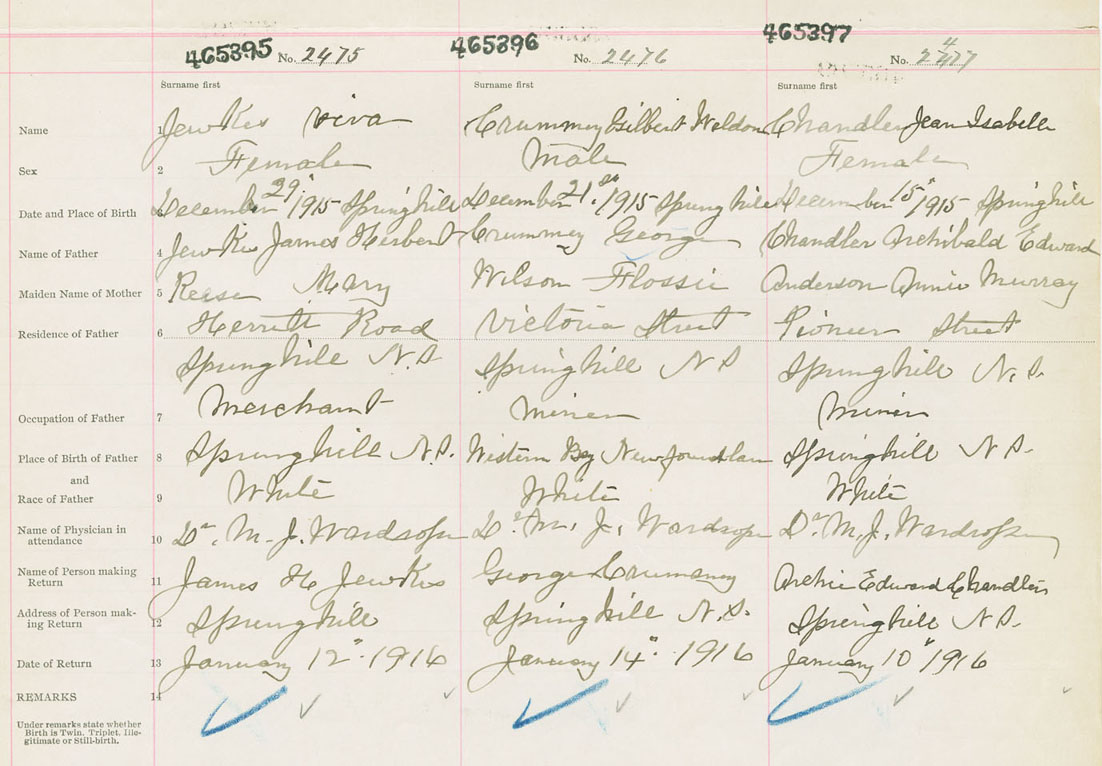 465395 No. 2475 465396 No. 2476 465397 No. 2477
Surname first Surname first Surname first
Name 1 Jewkes Viva Crummey Gilbert Weldon Chandler Jean Isabelle
Sex 2 Female Male Female
Date and Place of Birth 3 December 29" 1915 Springhill December 21st 1915 Springhill December 15" 1915 Springhill
Name of Father 4 Jewkes James Herbert Crummey George Chandler Archibald Edward
Maiden Name of Mother 5 Reese Mary Wilson Flossie Anderson Annie Murray
Residence of Father 6 Herrett Road Victoria Street Pioneer Street
Springhill N.S. Springhill N S Springhill N.S.
Occupation of Father 7 Merchant Miner Miner
Place of Birth of Father 8 Springhill N.S. Western Bay Newfoundlan Springhill N S.
and
Race of Father 9 White White White
Name of Physician in
attendance 10 Dr. M. J. Wardrope Dr. M. J. Wardrope Dr. M. J. Wardrope
Name of Person making
Return 11 James H Jewkes George Crummey Archie Edward Chandler
Address of Person mak-
ing Return 12 Springhill Springhill N.S. Springhill N S.
Date of Return 13 January 12" 1916 January 14" 1916 January 10" 1916
REMARKS 14
Under remarks state whether
Birth is Twin. Triplet. Ille-
gitimate or Still-birth.